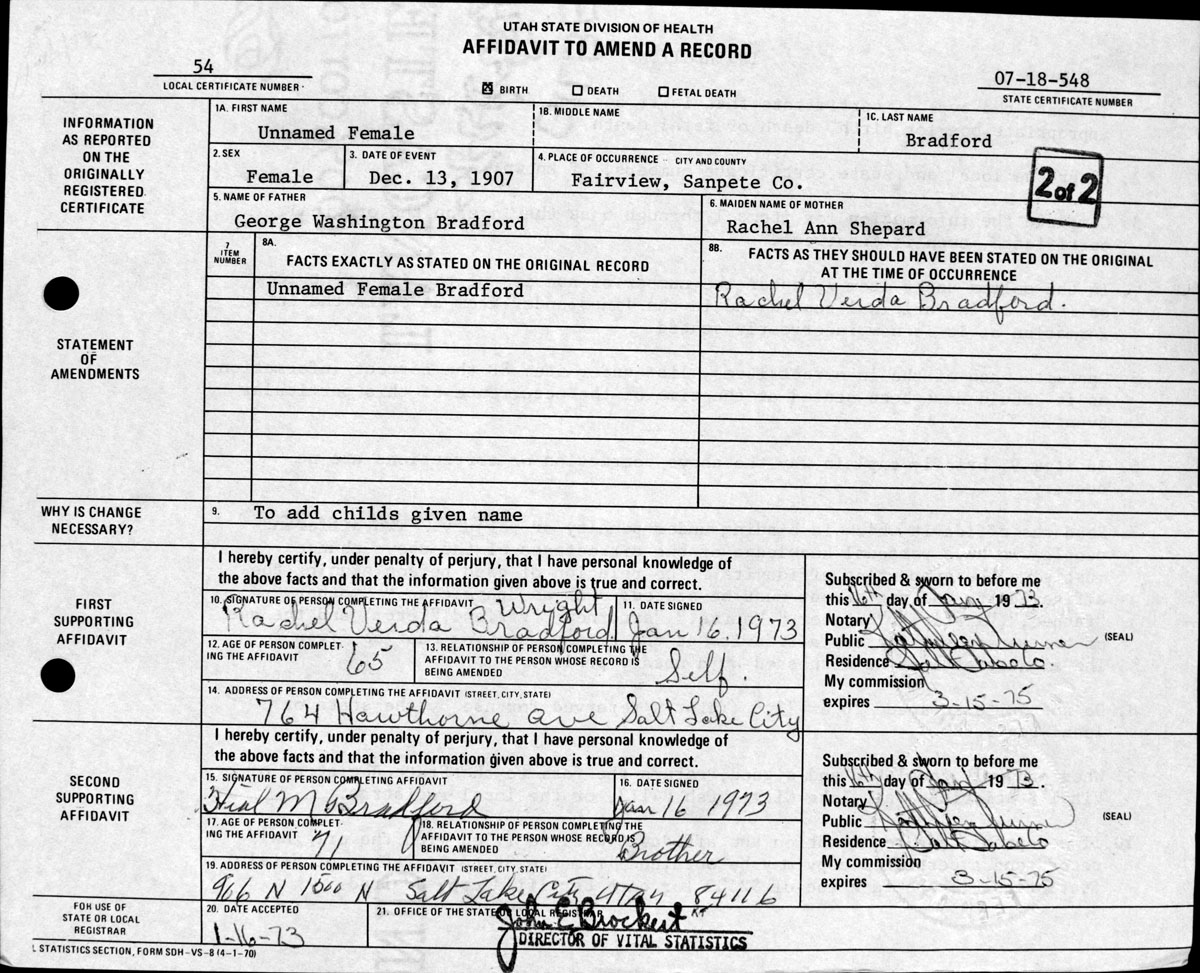 UTAH STATE DIVISION OF HEALTH
AFFIDAVIT TO AMEND A RECORD
54
LOCAL CERTIFICATE NUMBER
☒ BIRTH ☐ DEATH ☐ FETAL DEATH
07-18-548
STATE CERTIFICATE NUMBER
INFORMATION AS REPORTED ON THE ORIGINALLY REGISTERED CERTIFICATE
1A. FIRST NAME
Unnamed Female
1B. MIDDLE NAME
1C. LAST NAME
Bradford
2. SEX
Female
3. DATE OF EVENT
Dec. 13, 1907
4. PLACE OF OCCURRENCE - CITY AND COUNTY
Fairview, Sanpete Co.
2 of 2
5. NAME OF FATHER
George Washington Bradford
6. MAIDEN NAME OF MOTHER
Rachel Ann Shepard
STATEMENT OF AMENDMENTS
7 ITEM NUMBER
8A.
FACTS EXACTLY AS STATED ON THE ORIGINAL RECORD
8B. FACTS AS THEY SHOULD HAVE BEEN STATED ON THE ORIGINAL
AT THE TIME OF OCCURRENCE
Unnamed Female Bradford
Rachel Verda Bradford.
WHY IS CHANGE NECESSARY?
9. To add childs given name
FIRST SUPPORTING AFFIDAVIT
I hereby certify, under penalty of perjury, that I have personal knowledge of
the above facts and that the information given above is true and correct.
10. SIGNATURE OF PERSON COMPLETING THE AFFIDAVIT
Rachel Verda Bradford Wright
11. DATE SIGNED
Jan 16, 1973
12. AGE OF PERSON COMPLET-
ING THE AFFIDAVIT 65
13. RELATIONSHIP OF PERSON COMPLETING THE
AFFIDAVIT TO THE PERSON WHOSE RECORD IS
BEING AMENDED Self.
14. ADDRESS OF PERSON COMPLETING THE AFFIDAVIT (STREET, CITY, STATE)
764 Hawthorne ave Salt Lake City
Subscribed & sworn to before me
this 16th day of Jan 1973.
Notary
Public (SEAL)
Residence
My commission
expires 3-15-75
SECOND SUPPORTING AFFIDAVIT
I hereby certify, under penalty of perjury, that I have personal knowledge of
the above facts and that the information given above is true and correct.
15. SIGNATURE OF PERSON COMPLETING AFFIDAVIT
Bradford
16. DATE SIGNED
Jan 16 1973
17. AGE OF PERSON COMPLET-
ING THE AFFIDAVIT 71
18. RELATIONSHIP OF PERSON COMPLETING THE
AFFIDAVIT TO THE PERSON WHOSE RECORD IS
BEING AMENDED Brother
19. ADDRESS OF PERSON COMPLETING THE AFFIDAVIT (STREET, CITY, STATE)
N 1500 N Salt Lake City Utah 84116
Subscribed & sworn to before me
this 16th day of Jan 1973.
Notary
Public (SEAL)
Residence
My commission
expires 3-15-75
FOR USE OF STATE OR LOCAL REGISTRAR
20. DATE ACCEPTED
1-16-73
21. OFFICE OF THE STATE OR LOCAL REGISTRAR
John E Brockert
DIRECTOR OF VITAL STATISTICS
L STATISTICS SECTION, FORM SDH-VS-8 (4-1-70)